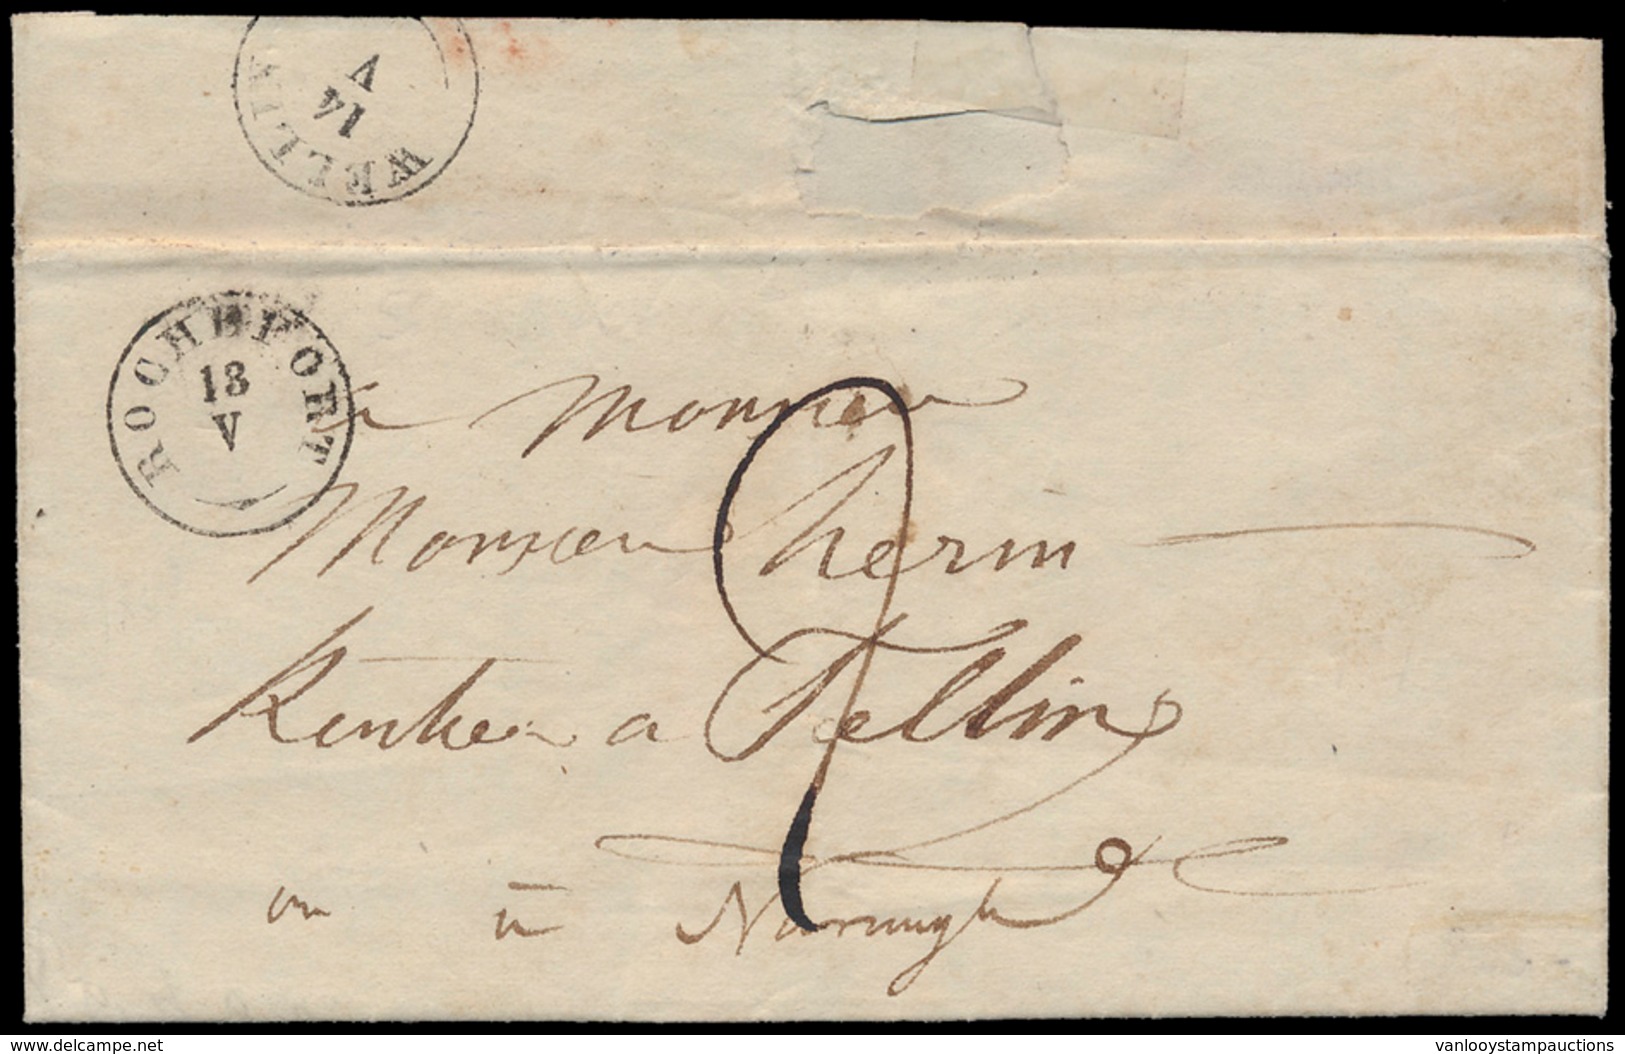 WELLIN
14
V
ROCHEFORT
13
V
a Monsieur
Monsieur herin
Rentier a Tellin
2
ou a
delcampe.net
vanlooystampauctions